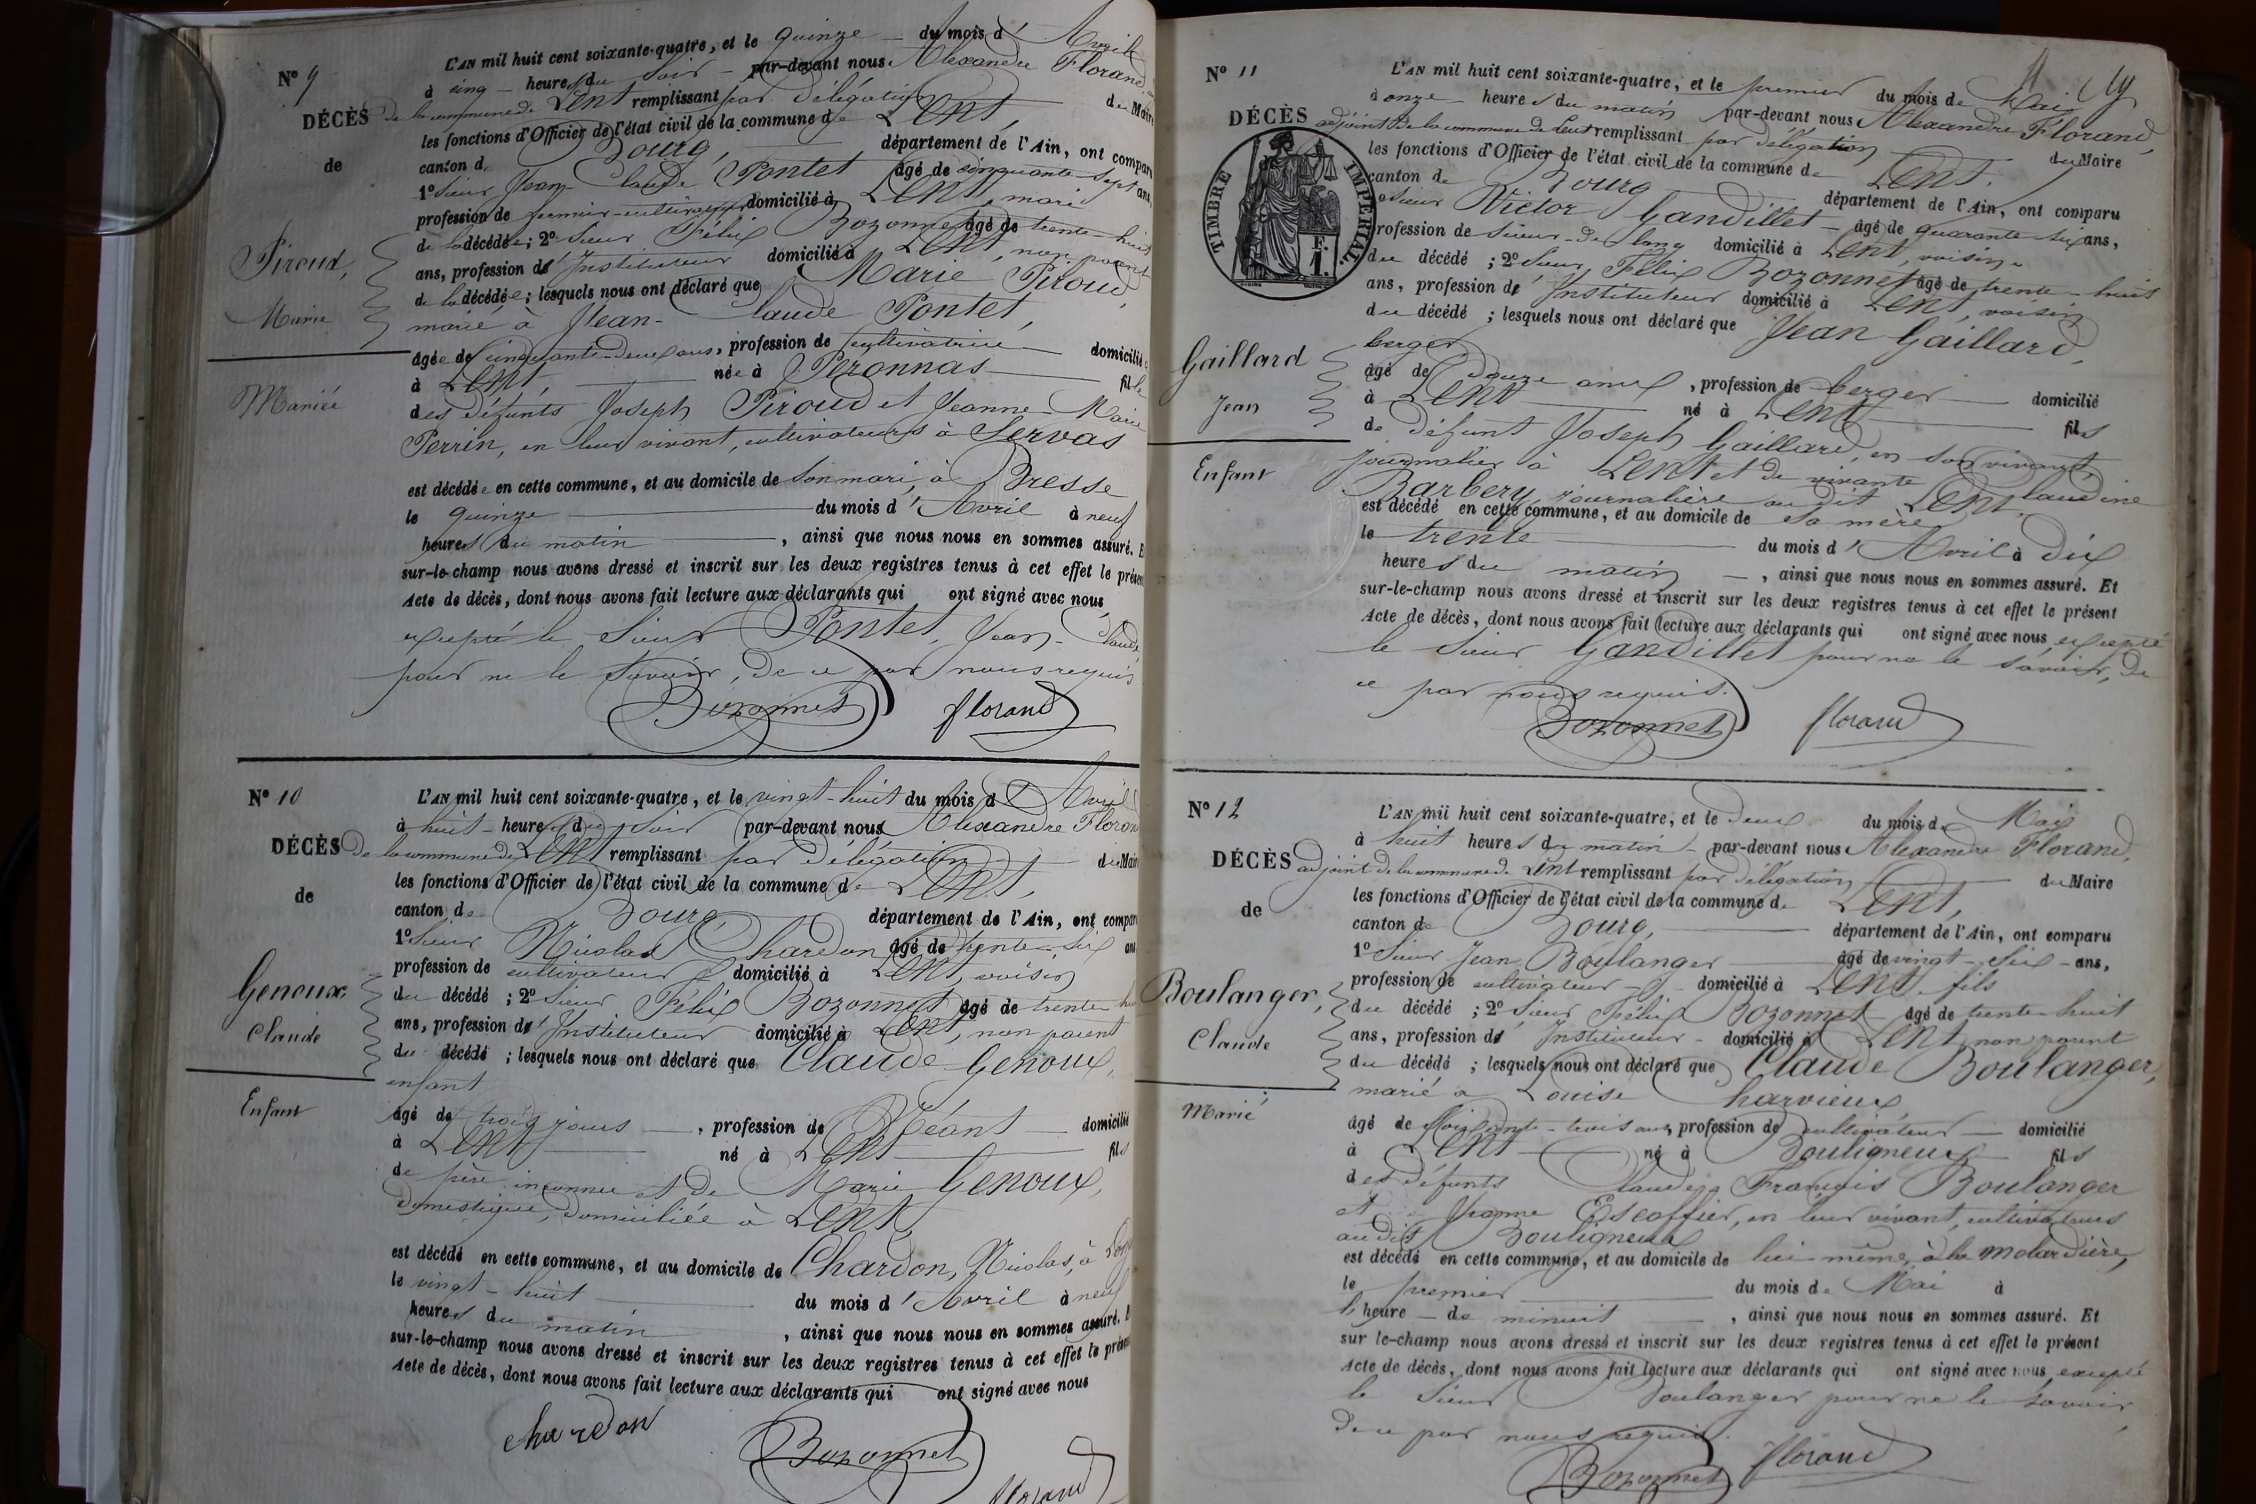 N° 9
DÉCÈS
de
Piroud,
Marie
Mariée
L'AN mil huit cent soixante-quatre, et le quinze du mois d'Avril
à cinq heures du soir par-devant nous Alexandre Florand,
de la commune de Lent remplissant par délégation du Maire
les fonctions d'Officier de l'état civil de la commune de Lent,
canton de Bourg, département de l'Ain, ont comparu
1° Sieur Jean-Claude Pontet âgé de cinquante-sept ans,
profession de fermier-cultivateur domicilié à Lent, mari
de la décédée; 2° Sieur Félix Bozonnet âgé de trente-huit
ans, profession d'Instituteur domicilié à Lent, non parent
de la décédée; lesquels nous ont déclaré que Marie Piroud,
mariée à Jean-Claude Pontet,
âgée de cinquante-deux ans, profession de cultivatrice domicilié
à Lent, née à Péronnas fille
des défunts Joseph Piroud et Jeanne-Marie
Perrin, en leur vivant, cultivateurs à Servas
est décédée en cette commune, et au domicile de son mari, à Bresse
le quinze du mois d'Avril à neuf
heures du matin, ainsi que nous nous en sommes assuré. E
sur-le-champ nous avons dressé et inscrit sur les deux registres tenus à cet effet le présen
Acte de décès, dont nous avons fait lecture aux déclarants qui ont signé avec nous
excepté le Sieur Pontet, Jean-Claude
pour ne le savoir, de ce par nous requis
Bozonnet Florand
N° 10
DÉCÈS
de
Genoux,
Claude
Enfant
L'AN mil huit cent soixante-quatre, et le vingt-huit du mois d'Avril
à huit heures du soir par-devant nous Alexandre Florand
de la commune de Lent remplissant par délégation du Maire
les fonctions d'Officier de l'état civil de la commune de Lent,
canton de Bourg département de l'Ain, ont compar
1° Sieur Nicolas Chardon âgé de trente-six ans
profession de cultivateur domicilié à Lent, voisin
du décédé; 2° Sieur Félix Bozonnet âgé de trente-hu
ans, profession d'Instituteur domicilié à Lent, non parent
du décédé; lesquels nous ont déclaré que Claude Genoux,
enfant
âgé de trois jours, profession de Néant domicilié
à Lent né à Lent fils
de père inconnu et de Marie Genoux,
domestique, domiciliée à Lent,
est décédé en cette commune, et au domicile de Chardon, Nicolas, à
le vingt-huit du mois d'Avril à neuf
heures du matin, ainsi que nous nous en sommes assuré. E
sur-le-champ nous avons dressé et inscrit sur les deux registres tenus à cet effet le présen
Acte de décès, dont nous avons fait lecture aux déclarants qui ont signé avec nous
chardon Bozonnet
florand
N° 11
DÉCÈS
TIMBRE IMPERIAL.
Gaillard
Jean
Enfant
L'AN mil huit cent soixante-quatre, et le premier du mois de Mai
à onze heures du matin par-devant nous Alexandre Florand,
adjoint de la commune de Lent remplissant par délégation du Maire
les fonctions d'Officier de l'état civil de la commune de Lent.
canton de Bourg département de l'Ain, ont comparu
Sieur Victor Gandillet âgé de quarante six ans,
profession de scieur de long domicilié à Lent, voisin
du décédé; 2° Sieur Félix Bozonnet âgé de trente-huit
ans, profession d'Instituteur domicilié à Lent, voisin
du décédé; lesquels nous ont déclaré que Jean Gaillard,
berger
âgé de douze ans, profession de berger domicilié
à Lent né à Lent fils
de défunt Joseph Gaillard, en son vivant,
journalier à Lent et de vivante Claudine
Barbery, journalière au dit Lent.
est décédé en cette commune, et au domicile de sa mère
le trente du mois d'Avril à dix
heures du matin, ainsi que nous nous en sommes assuré. Et
sur-le-champ nous avons dressé et inscrit sur les deux registres tenus à cet effet le présent
Acte de décès, dont nous avons fait lecture aux déclarants qui ont signé avec nous, excepté
le Sieur Gandillet pour ne le savoir, de
ce par nous requis.
Bozonnet florand
N° 12
DÉCÈS
de
Boulanger,
Claude
Marié
L'AN mil huit cent soixante-quatre, et le deux du mois de Mai
à huit heures du matin par-devant nous Alexandre Florand,
adjoint de la commune de Lent remplissant par délégation du Maire
les fonctions d'Officier de l'état civil de la commune de Lent,
canton de Bourg, département de l'Ain, ont comparu
1° Sieur Jean Boulanger âgé de vingt-six ans,
profession de cultivateur domicilié à Lent fils
du décédé; 2° Sieur Félix Bozonnet âgé de trente-huit
ans, profession d'Instituteur domicilié à Lent, non parent
du décédé; lesquels nous ont déclaré que Claude Boulanger,
marié à Louise Charvieux
âgé de soixante-trois ans, profession de cultivateur domicilié
à Lent né à Bouligneux fils
des défunts Claude, François Boulanger
et Jeanne Escoffier, en leur vivant, cultivateurs
audit Bouligneux
est décédé en cette commune, et au domicile de lui-même, à la Molardière,
le premier du mois de Mai à
l'heure de minuit, ainsi que nous nous en sommes assuré. Et
sur le-champ nous avons dressé et inscrit sur les deux registres tenus à cet effet le présent
Acte de décès, dont nous avons fait lecture aux déclarants qui ont signé avec nous, excepté
le Sieur Boulanger pour ne le savoir,
de ce par nous requis.
Bozonnet florand